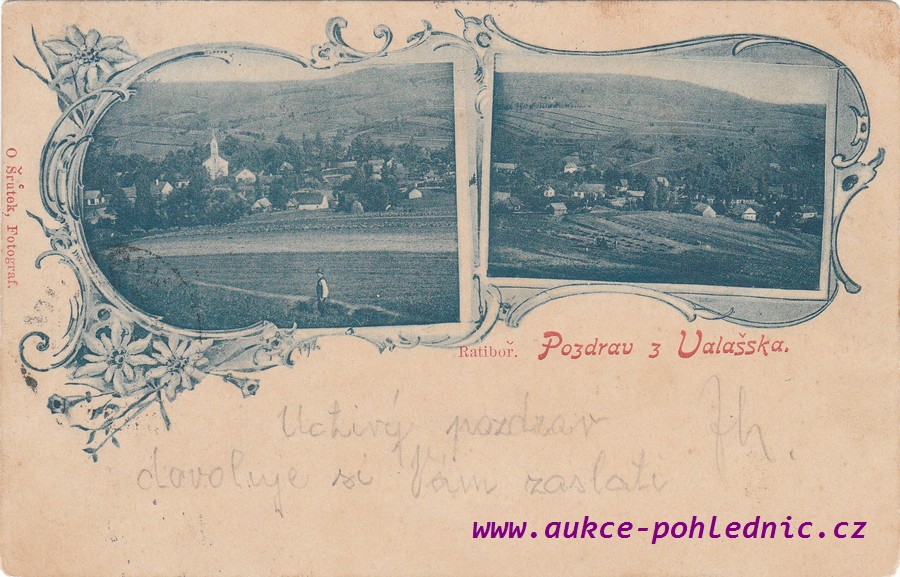 O Šrůtek, Fotograf.
Ratiboř.
Pozdrav z Valašska.
Uctivý pozdrav
dovoluje si Vám zaslati
www.aukce-pohlednic.cz